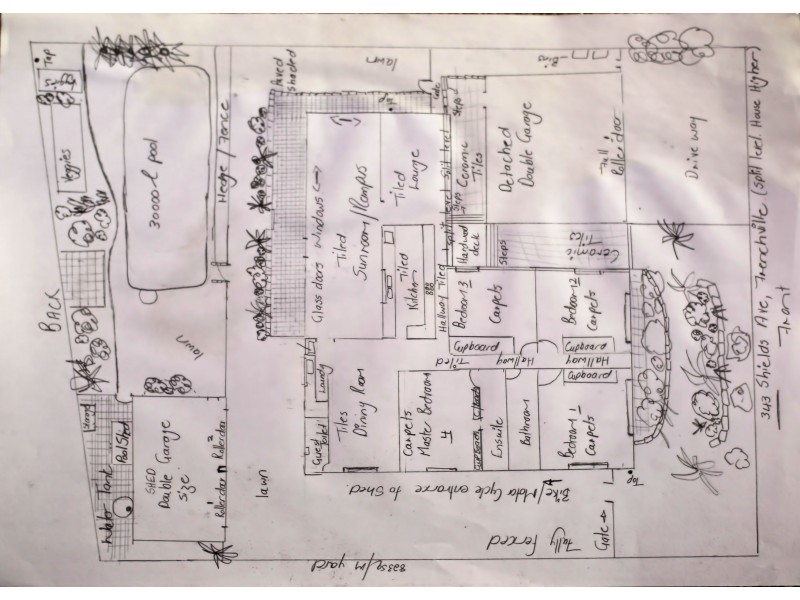 BACK
Tap
Veggies
30000 L pool
Hedge/Fence
lawn
Paved
shaded
lawn
Bins
Glass doors windows
Tiled
Sunroom/Rompas
Tiled
Lounge
Tiled
Kitchen
BBQ
Hallway Tiled
Split level
Split level
Split level
Gate
Steps
Ceramic
Tiles
Steps
Hardwood
deck
Steps
Ceramic
Tiles
Detached
Double Garage
Full
Roller door
Drive way
Bedroom 3
Carpets
Bedroom 2
Carpets
Wardrobe
Wardrobe
Hallway
Tiled
Hallway
Hallway
Wardrobe
Bedroom 1
Carpets
Bathroom
Ensuite
Carpets
Master Bedroom
4
Tiles
Dinning Room
Laundry
Guest
toilet
Water Tank
Pool Shed
SHED
Double Garage
size
Rollerdoor
1
Rollerdoor
2
lawn
Bike/Moto Cycle entrance to Shed
Tap
Gate
Fully Fenced
823sq/m yard
343 Shields Ave, Frenchville (split level House Higher)
Front